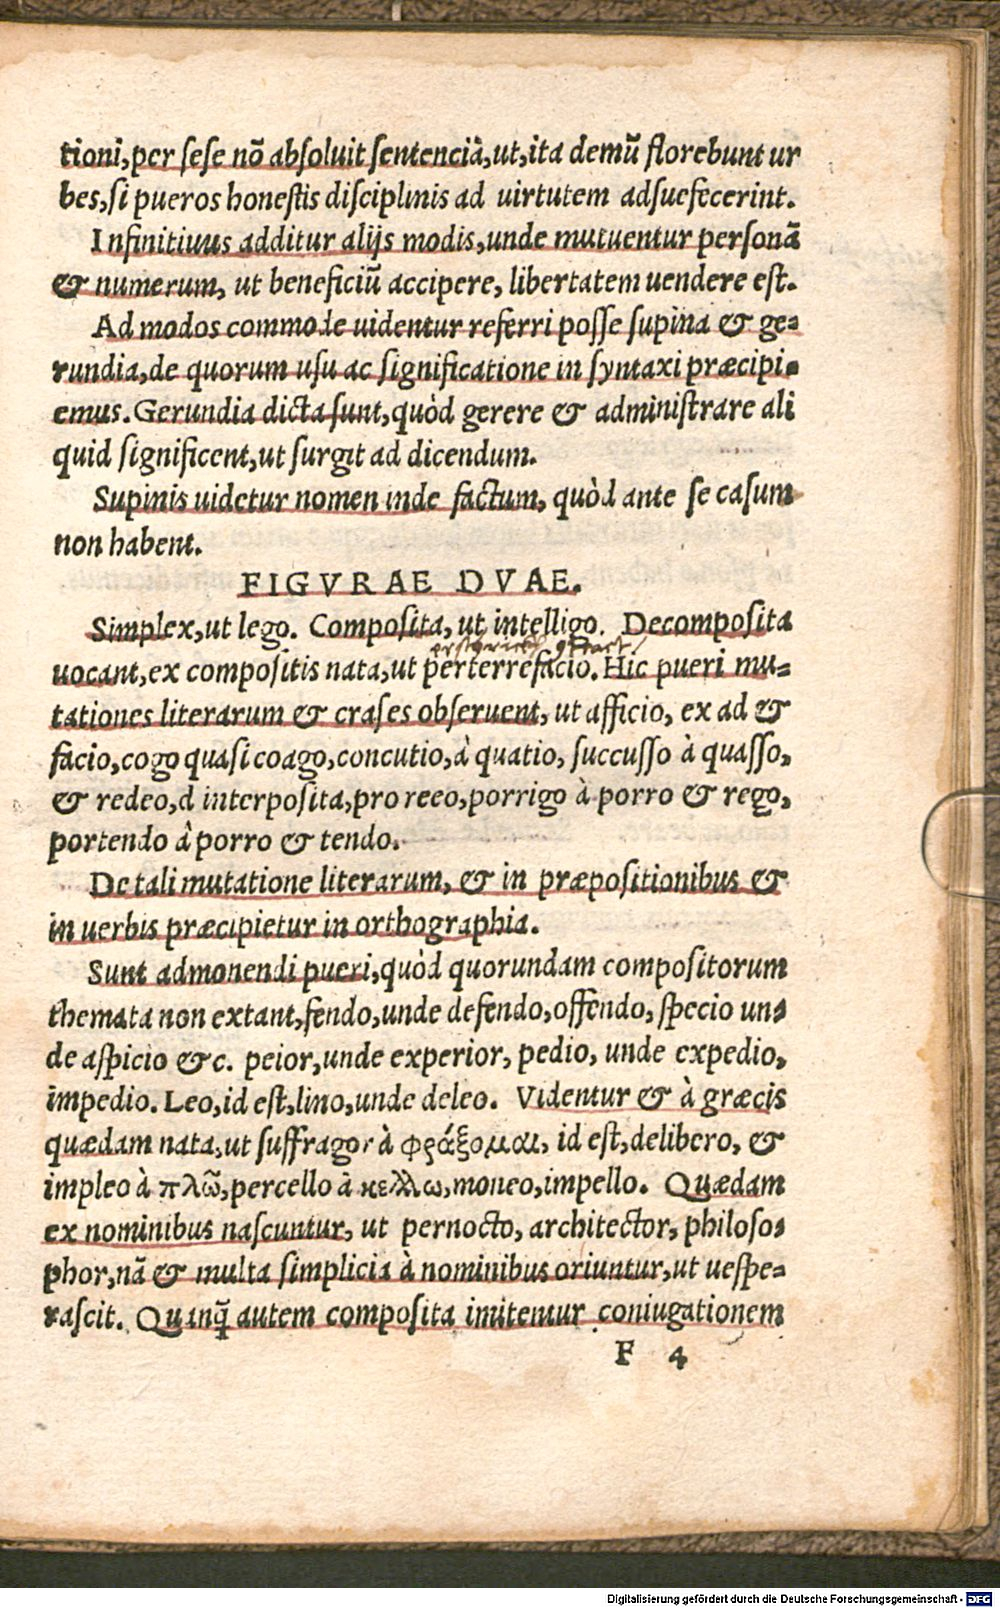 tioni, per sese nõ absoluit sentenciã, ut, ita demũ florebunt ur
bes, si pueros honestis disciplinis ad uirtutem adsuefecerint.
Infinitiuus additur alijs modis, unde mutuentur personã
& numerum, ut beneficiũ accipere, libertatem uendere est.
Ad modos commode uidentur referri posse supina & ge-
rundia, de quorum usu ac significatione in syntaxi præcipi-
emus. Gerundia dicta sunt, quòd gerere & administrare ali
quid significent, ut surgit ad dicendum.
Supinis uidetur nomen inde factum, quòd ante se casum
non habent.
FIGVRAE DVAE.
Simplex, ut lego. Composita, ut intelligo. Decomposita
uocant, ex compositis nata, ut perterrefacio. Hic pueri mu-
tationes literarum & crases obseruent, ut afficio, ex ad &
facio, cogo quasi coago, concutio, à quatio, succusso à quasso,
& redeo, d interposita, pro reeo, porrigo à porro & rego,
portendo à porro & tendo.
De tali mutatione literarum, & in præpositionibus &
in uerbis præcipietur in orthographia.
Sunt admonendi pueri, quòd quorundam compositorum
themata non extant, fendo, unde defendo, offendo, specio un-
de aspicio &c. peior, unde experior, pedio, unde expedio,
impedio. Leo, id est, lino, unde deleo. Videntur & à græcis
quædam nata, ut suffragor à φράζομαι, id est, delibero, &
impleo à πλῶ, percello à κελλω, moneo, impello. Quædam
ex nominibus nascuntur, ut pernocto, architector, philoso-
phor, nã & multa simplicia à nominibus oriuntur, ut uespe-
rascit. Quanq̃ autem composita imitentur coniugationem
F 4
Digitalisierung gefördert durch die Deutsche Forschungsgemeinschaft - DFG